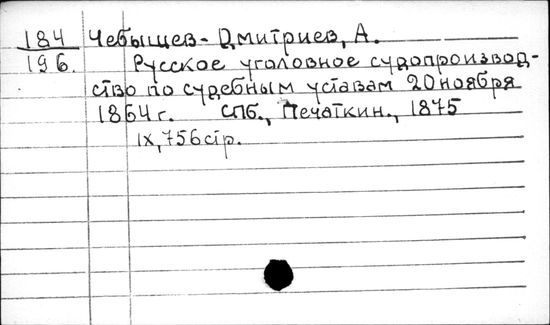 184 Чебышев-Дмитриев, А.
196. Русское уголовное судопроизвод-
ство по судебным уставам 20 ноября
1864г. СПб., Печаткин., 1875
IX, 756 стр.